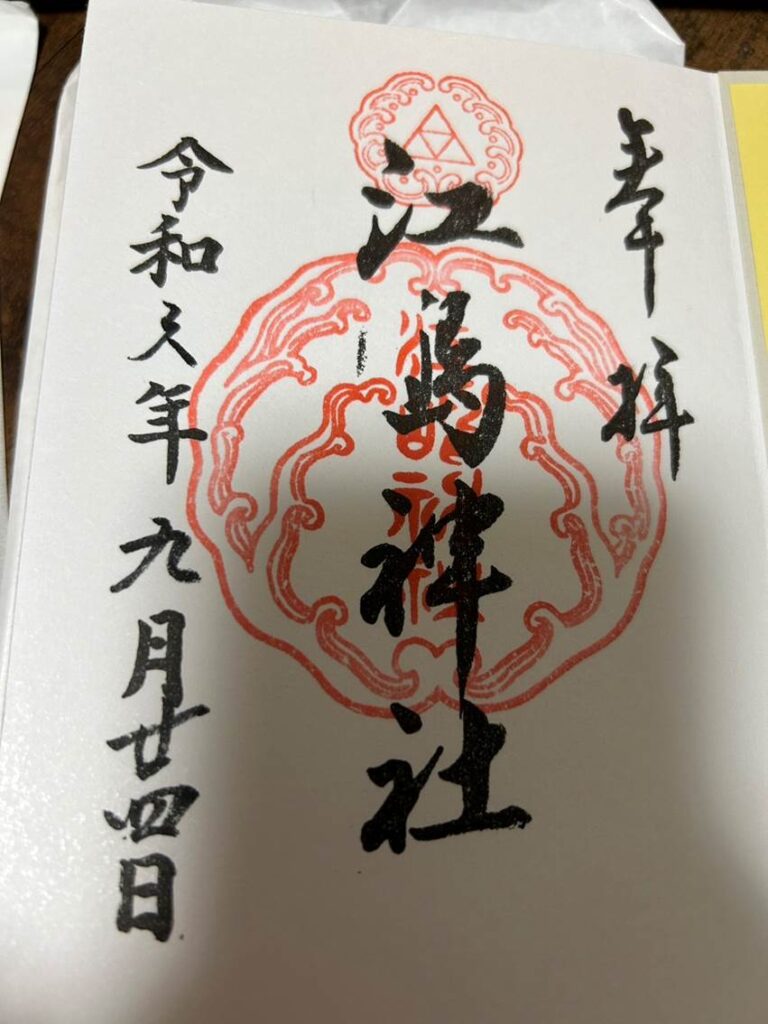 奉拝
江島神社
令和 年九月廿四日